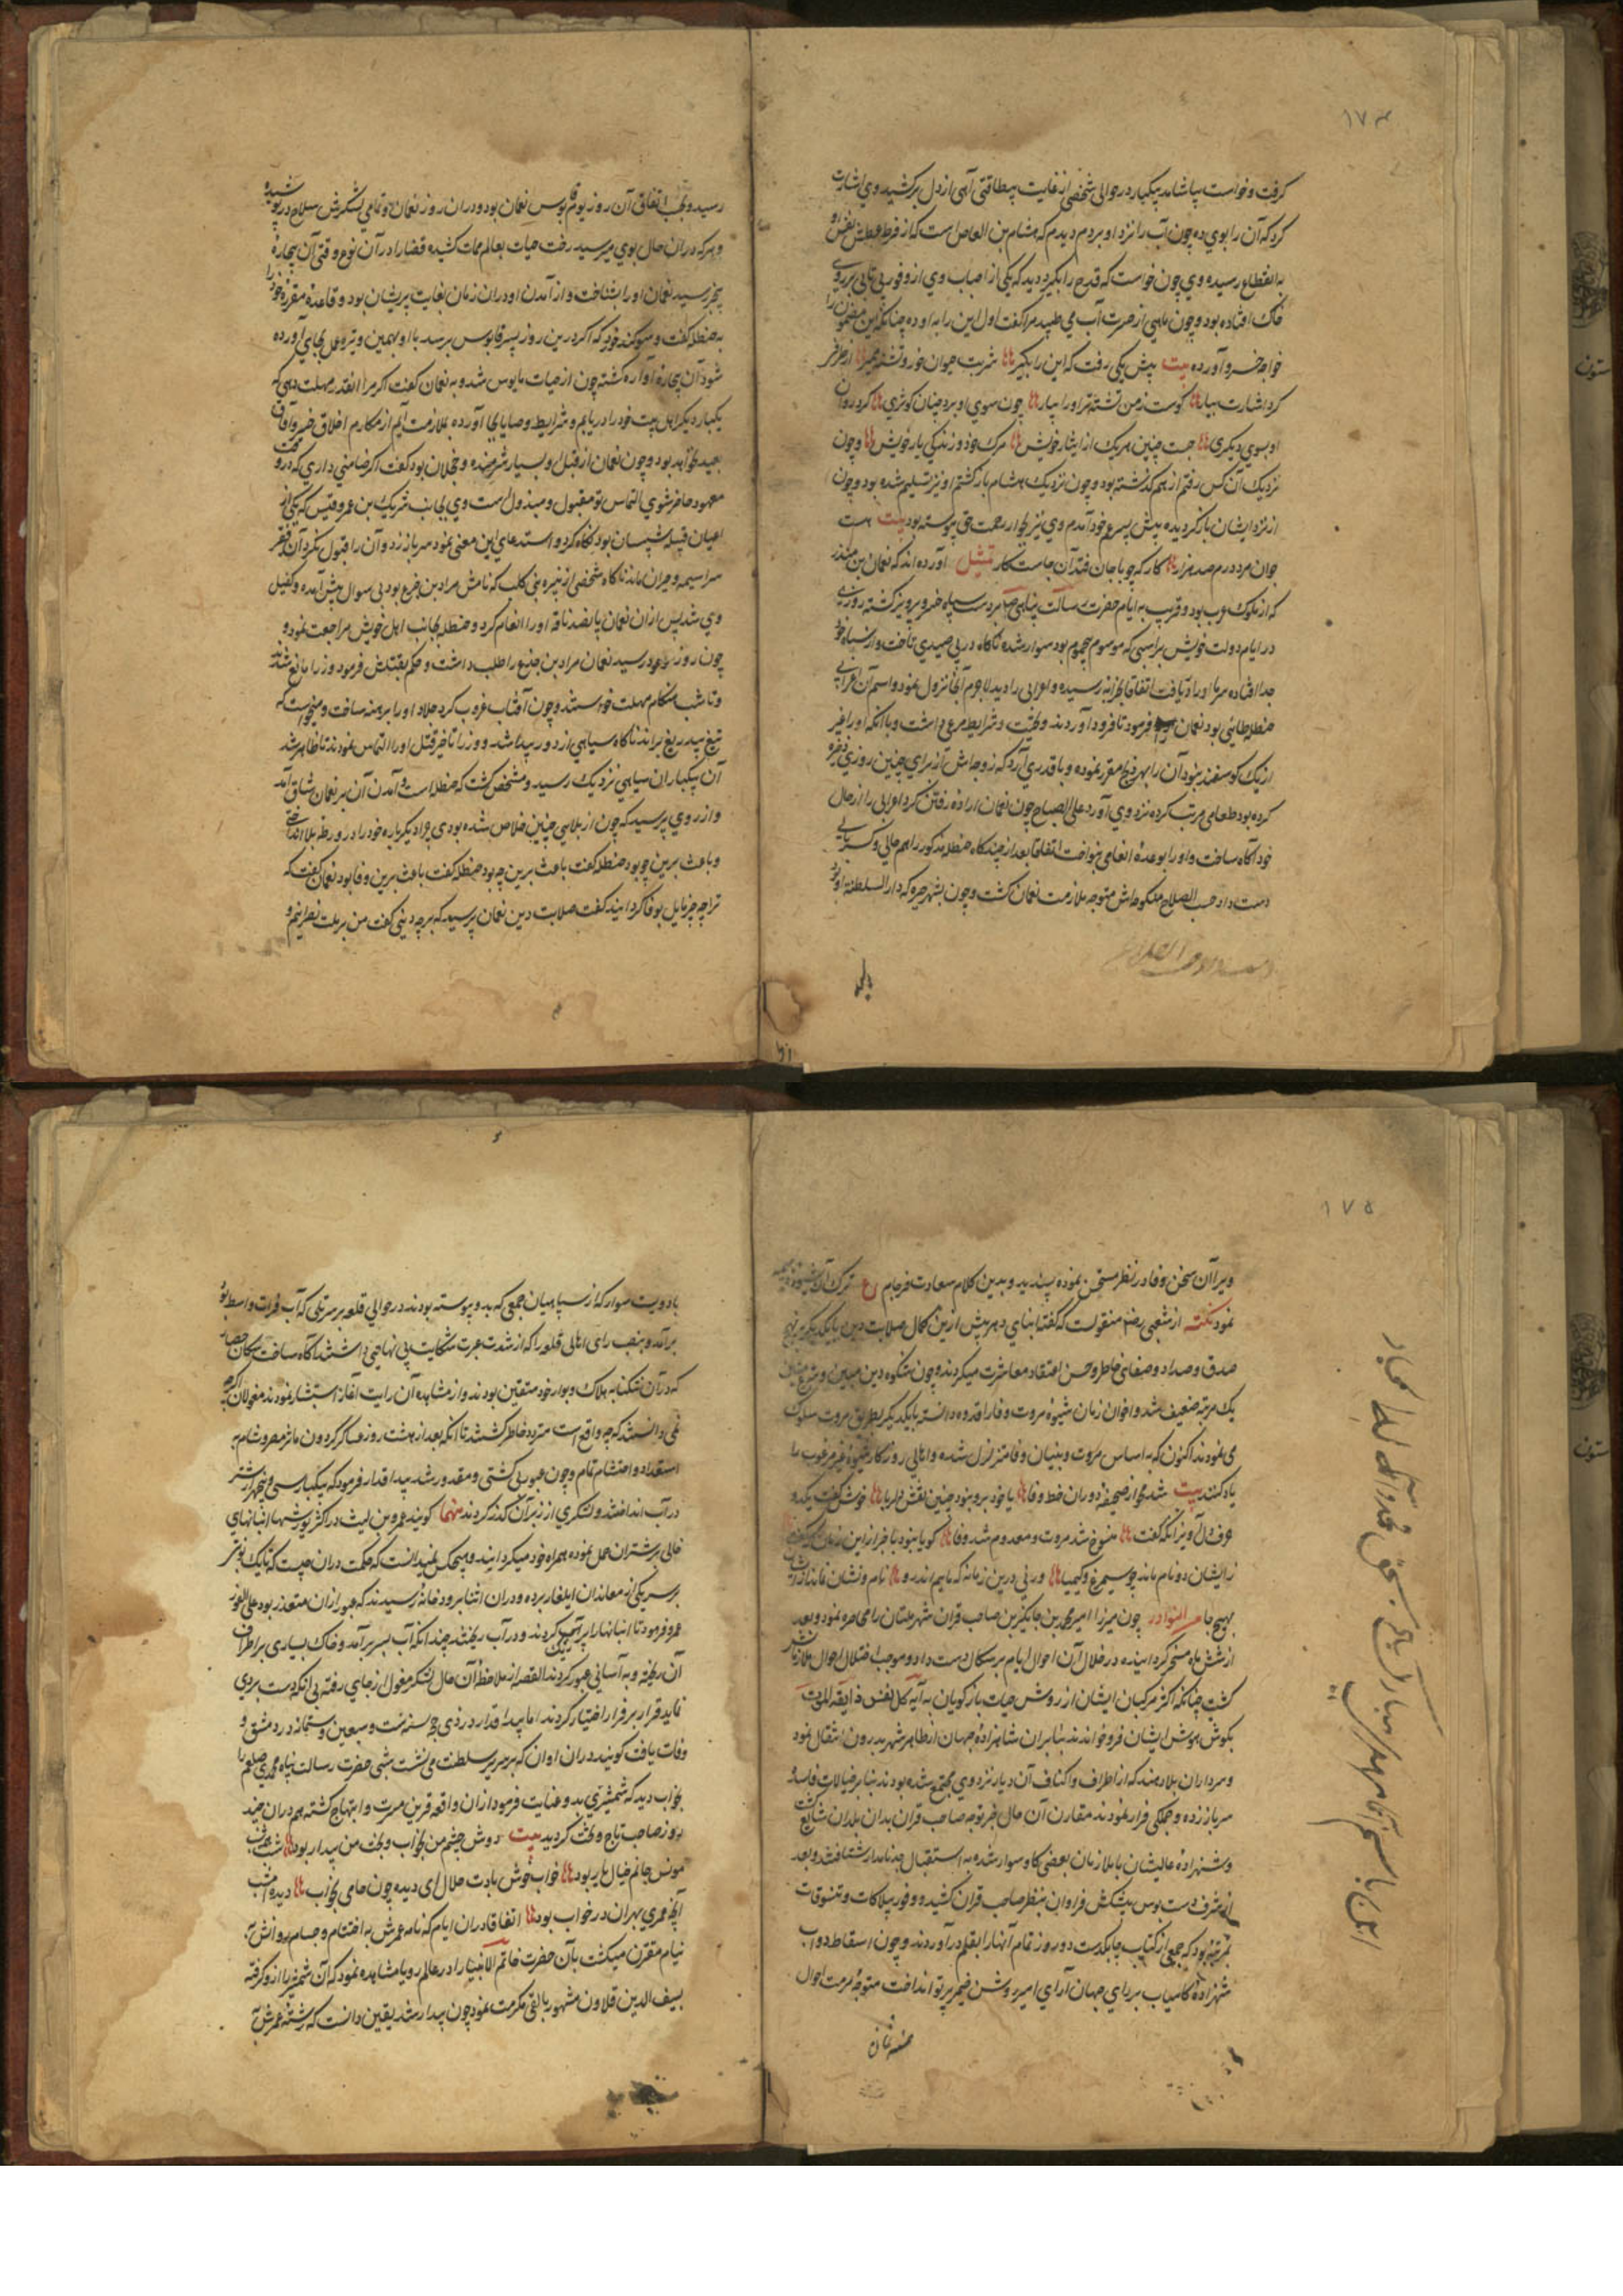 ۱۷۴
گرفت و خواست بیاشامد یکبار در حوالی شخصی از غایت بیطاقتی آهی از دل برکشید وی اشارت
کرد که آن را بوی ده چون آب را نزد او بردم دیدم که هشام بن العاص است که از فرط عطش نفس او
به انقطاع رسیده وی چون خواست که قدح را بگیرد دید که یکی از اصحاب وی از وفور بی تابی بر روی
خاک افتاده بود و چون ماهی از حسرت آب می طپید مرا گفت اول این را به او ده چنانکه این مضمون را
خواجه خسرو آورده بیت پیش یکی رفت که این را بگیر شربت حیوان خور و تشنه ممیر او از طرفی
کرد اشارت بیار کوست ز من تشنه تر او را بیار چون سوی او برد چنان کوثری کرد روان
او بسوی دیگری جست چنین هر یک از ایثار خویش مرگ خود و زندگی یار خویش و چون
نزدیک آن کس رفتم از هم گذشته بود و چون نزدیک هشام بازگشتم او نیز تسلیم شده بود و چون
از نزد ایشان بازگردیده پیش پسر عم خود آمدم وی نیز بجوار رحمت حق پیوسته بود بیت هست
جوان مرد درم صد هزار کار که چو با جان فتد آن جاست کار تمثیل آورده اند که نعمان بن منذر
که از ملوک عرب بود و قریب به ایام حضرت رسالت پناهی بر دست سپاه خسرو پرویز کشته روزی
در ایام دولت خویش بر اسبی که موسوم بیحموم بود سوار شده ناگاه در پی صیدی تاخت و از سپاه خود
جدا افتاده سرما او را دریافت اتفاقا بخرانه رسیده و اعرابی را دید لاجرم آنجا نزول نمود و اسم آن اعرابی
حنظله طایی بود نعمان فرمود تا فرود آوردند و تحیت و شرایط مرعی داشت و با آنکه او را غیر
از یک گوسفند نبود آن را بهر ذبح مقرر نموده و با قدری آرد که زوجه اش از برای چنین روزی ذخیره
کرده بود طعامی مرتب کرده نزد وی آورد علی الصباح چون نعمان اراده رفتن کرد اعرابی را از حال
خود آگاه ساخت و او را بوعده انعامی بنواخت اتفاقا بعد از چندگاه حنظله مذکور را هم حالی و کسریایی
دست داد حسب الصلاح منکوحه اش متوجه ملازمت نعمان گشت و چون بشهر حیره که دار السلطنه او بود
رسید و بحسب اتفاق آن روز یوم بوس نعمان بود و در آن روز نعمان و تمامی لشکرش سلاح در پوشیده
و هر که در آن حال بوی میرسید رخت حیات بعالم ممات کشیده قضا را در آن نوع وقتی آن بیچاره
بیخبر رسید نعمان او را شناخت و از آمدن او در آن زمان بغایت پریشان بود و قاعده مقرره خود را
به حنظله گفت و سوگند خورد که اگر درین روز پسر قابوس برسد با او همین وتیره عمل بجای آورده
شود آن بیچاره آواره گشته چون از حیات مایوس شد و به نعمان گفت اگر مرا آنقدر مهلت دهی که
یکبار دیگر اهل بیت خود را دریابم و شرایط وصایا بجای آورده بملازمت آیم از مکارم اخلاق خسرو آفاق
بعید نخواهد بود و چون نعمان از قبل او بسیار شرمنده و خجلان بود گفت اگر ضامنی داری که در وقت
معهود حاضر شوی التماس تو مقبول و مبذول است وی بجانب شریک بن عمرو قیس که یکی از
اعیان قبیله شیبان بود نگاه کرد و استدعای این معنی نمود سر باز زد و آن را قبول نکرد آن فقیر
سراسیمه و حیران ماند ناگاه شخصی از تیره بنی کلب که نامش مراد بن جزع بود بی سوال پیش آمده و کفیل
وی شد پس از آن نعمان پانصد ناقه او را انعام کرد و حنظله بجانب اهل خویش مراجعت نمود و
چون روز موعود رسید نعمان مراد بن جزع را طلب داشت و حکم بقتلش فرمود وزرا مانع شدند
و تا شب هنگام مهلت خواستند و چون آفتاب غروب کرد جلاد او را برهنه ساخت و میخواست که
تیغ بیدریغ براند ناگاه سیاهی از دور پیدا شد و وزرا تاخیر قتل او را التماس نمودند تا ظاهر شد
آن یکباران سیاهی نزدیک رسید و مشخص گشت که حنظله است و آمدن آن بر نعمان شاق آمد
و از وی پرسید که چون از بلایی چنین خلاص شده بودی چرا دیگر باره خود را در ورطه بلا انداختی
و باعث برین چه بود حنظله گفت باعث برین وفا بود نعمان گفت که
ترا چه چیز مایل بوفا گردانید گفت صلابت دین نعمان پرسید که بر چه دینی گفت من بر ملت نصرانیم و
۱۷۵
ویرا آن سخن وفا در نظر مستحسن نموده پسندید و بدین کلام سعادت فرجام ع ترک آن شیوه ذمیمه
نمود نکته از شعبی رضی منقولست که گفته ابنای دهر پیش ازین بکمال صلابت دین با یکدیگر بر نهج
صدق و صداد و صفای خاطر و حسن اعتقاد معاشرت میکردند و چون شکوه دین مبین و شرع متین
یک مرتبه ضعیف شد و اخوان زمان شیوه مروت و وفا را قدوه دانسته با یکدیگر بطریق مروت سلوک
می نمودند اکنون که به اساس مروت و بنیان وفا متزلزل شده و اهالی روزگار شیوه غیر مرغوب را
یاد کنند بیت شد محو از صحیفه دوران خط وفا یا خود برو نبود چنین نقش دلربا خوش گفت یکدو
حرف دلاویز آنکه گفت منسوخ شد مروت و معدوم شد وفا گویا نبود با خبر از این زمان که گفت
زایشان دو نام ماند چو سیمرغ و کیمیا ور نی درین زمانه که ماییم اندرو نام و نشان نماند از ایشان
بهیچ جا من النوادر چون میرزا امیر محمد بن جهانگیر بن صاحب قران شهر ملتان را محاصره نمود و بعد
از شش ماه مسخر گردانیده در خلال آن احوال ایام برسکال دست داد و موجب اختلال احوال ملازمانش
گشت چنانکه اکثر مرکبان ایشان از روش حیات بازگویان به آیه کل نفس ذائقة الموت
بگوش هوش ایشان فرو خواندند بنابران شاهزاده جهان از ظاهر شهر بدرون انتقال نمود
و سرداران بلاد هند که از اطراف و اکناف آن دیار نزد وی مجتمع شده بودند بنا بر خیالات فاسده
سر باز زده و جملگی فرار نمودند مقارن آن حال خبر توجه صاحب قران بدان بلدان شایع گشت
و شهزاده عالیشان با ملازمان بعضی گاو سوار شده به استقبال جد نامدار شتافتند و بعد
از شرف دست بوس پیشکش فراوان بنظر صاحب قران کشید و وفور بیلاکات و تنسوقات
بمرتبه بود که جمعی از کتاب چابکدست دو روز تمام آنها را بقلم درآوردند و چون اسقاط دواب
شهزاده کامیاب بر رای جهان آرای امیر روشن ضمیر پرتو انداخت متوجه مرمت احوال
با دویست سوار که از سپاهیان جمعی که بدو پیوسته بودند در حوالی قلعه بر سر تلی که آب فرات واسط بود
برآمد و بنصب رای اهالی قلعه را که از شدت حسرت شکایت بی نهایتی داشتند آگاه ساخت سکان حصار
که در آن تنگنا به هلاک و بوار خود متیقین بودند و از مشاهده آن رایت آغاز استبشار نمودند مغولان اگرچه
نمی دانستند که چه واقع است متردد خاطر گشتند تا آنکه بعد از هشت روز عساکر گردون مآثر مصر و شام به
استعداد و احتشام تمام و چون عبور بی کشتی و مقدور شد بیدا قدار فرمود که یکبار سی و پنج هزار شتر
در آب انداختند و لشکری از زبر آن گذر کردند منها گویند عمرو بن لیث در اکثر یورشها انبانهای
خالی بر شتران حمل نموده همراه خود میگردانید و هیچکس نمیدانست که حکمت در آن چیست که تا یک نوبت
بر سر یکی از معاندان ایلغار برده و در آن اثنا برودخانه رسیدند که عبور از آن متعذر بود علی الفور
عمرو فرمود تا انبانها را پر ریگ کردند و در آب ریختند چندانکه آب بسر برآمد و خاک بسیاری بر اطراف
آن ریخته و به آسانی عبور کردند القصه از ملاحظه آن حال لشکر مغول از جای رفته بی آنکه دست بردی
نماید قرار بر فرار اختیار کردند اما بیدا قدار در ذی حجه سنه ست و سبعین و ستمائه در دمشق و
وفات یافت گویند در آن اوان که بر سریر سلطنت می نشست شبی حضرت رسالت پناه محمدی صلعم را
بخواب دید که شمشیری بدو عنایت فرمود از آن واقعه قرین مسرت و ابتهاج گشته هم در آن چند
روز صاحب تاج و تخت گردید بیت دوش چشم من بخواب و بخت من بیدار بود شب همه شب
مونس جانم خیال یار بود خواب خوش بادت حلال ای دیده چون جامی بخواب دیده امشب
آنچه عمری بهر آن در خواب بود اتفاقا در آن ایام که نامه عمرش به اختتام و حسام روانش به
نیام مقترن میگشت بآن حضرت خاتم الانبیا را در عالم رویا مشاهده نمود که آن شمشیر را ازو گرفته
بسیف الدین قلاون مشهور بالفی مکرمت نمود چون بیدار شد یقین دانست که رشته عمرش